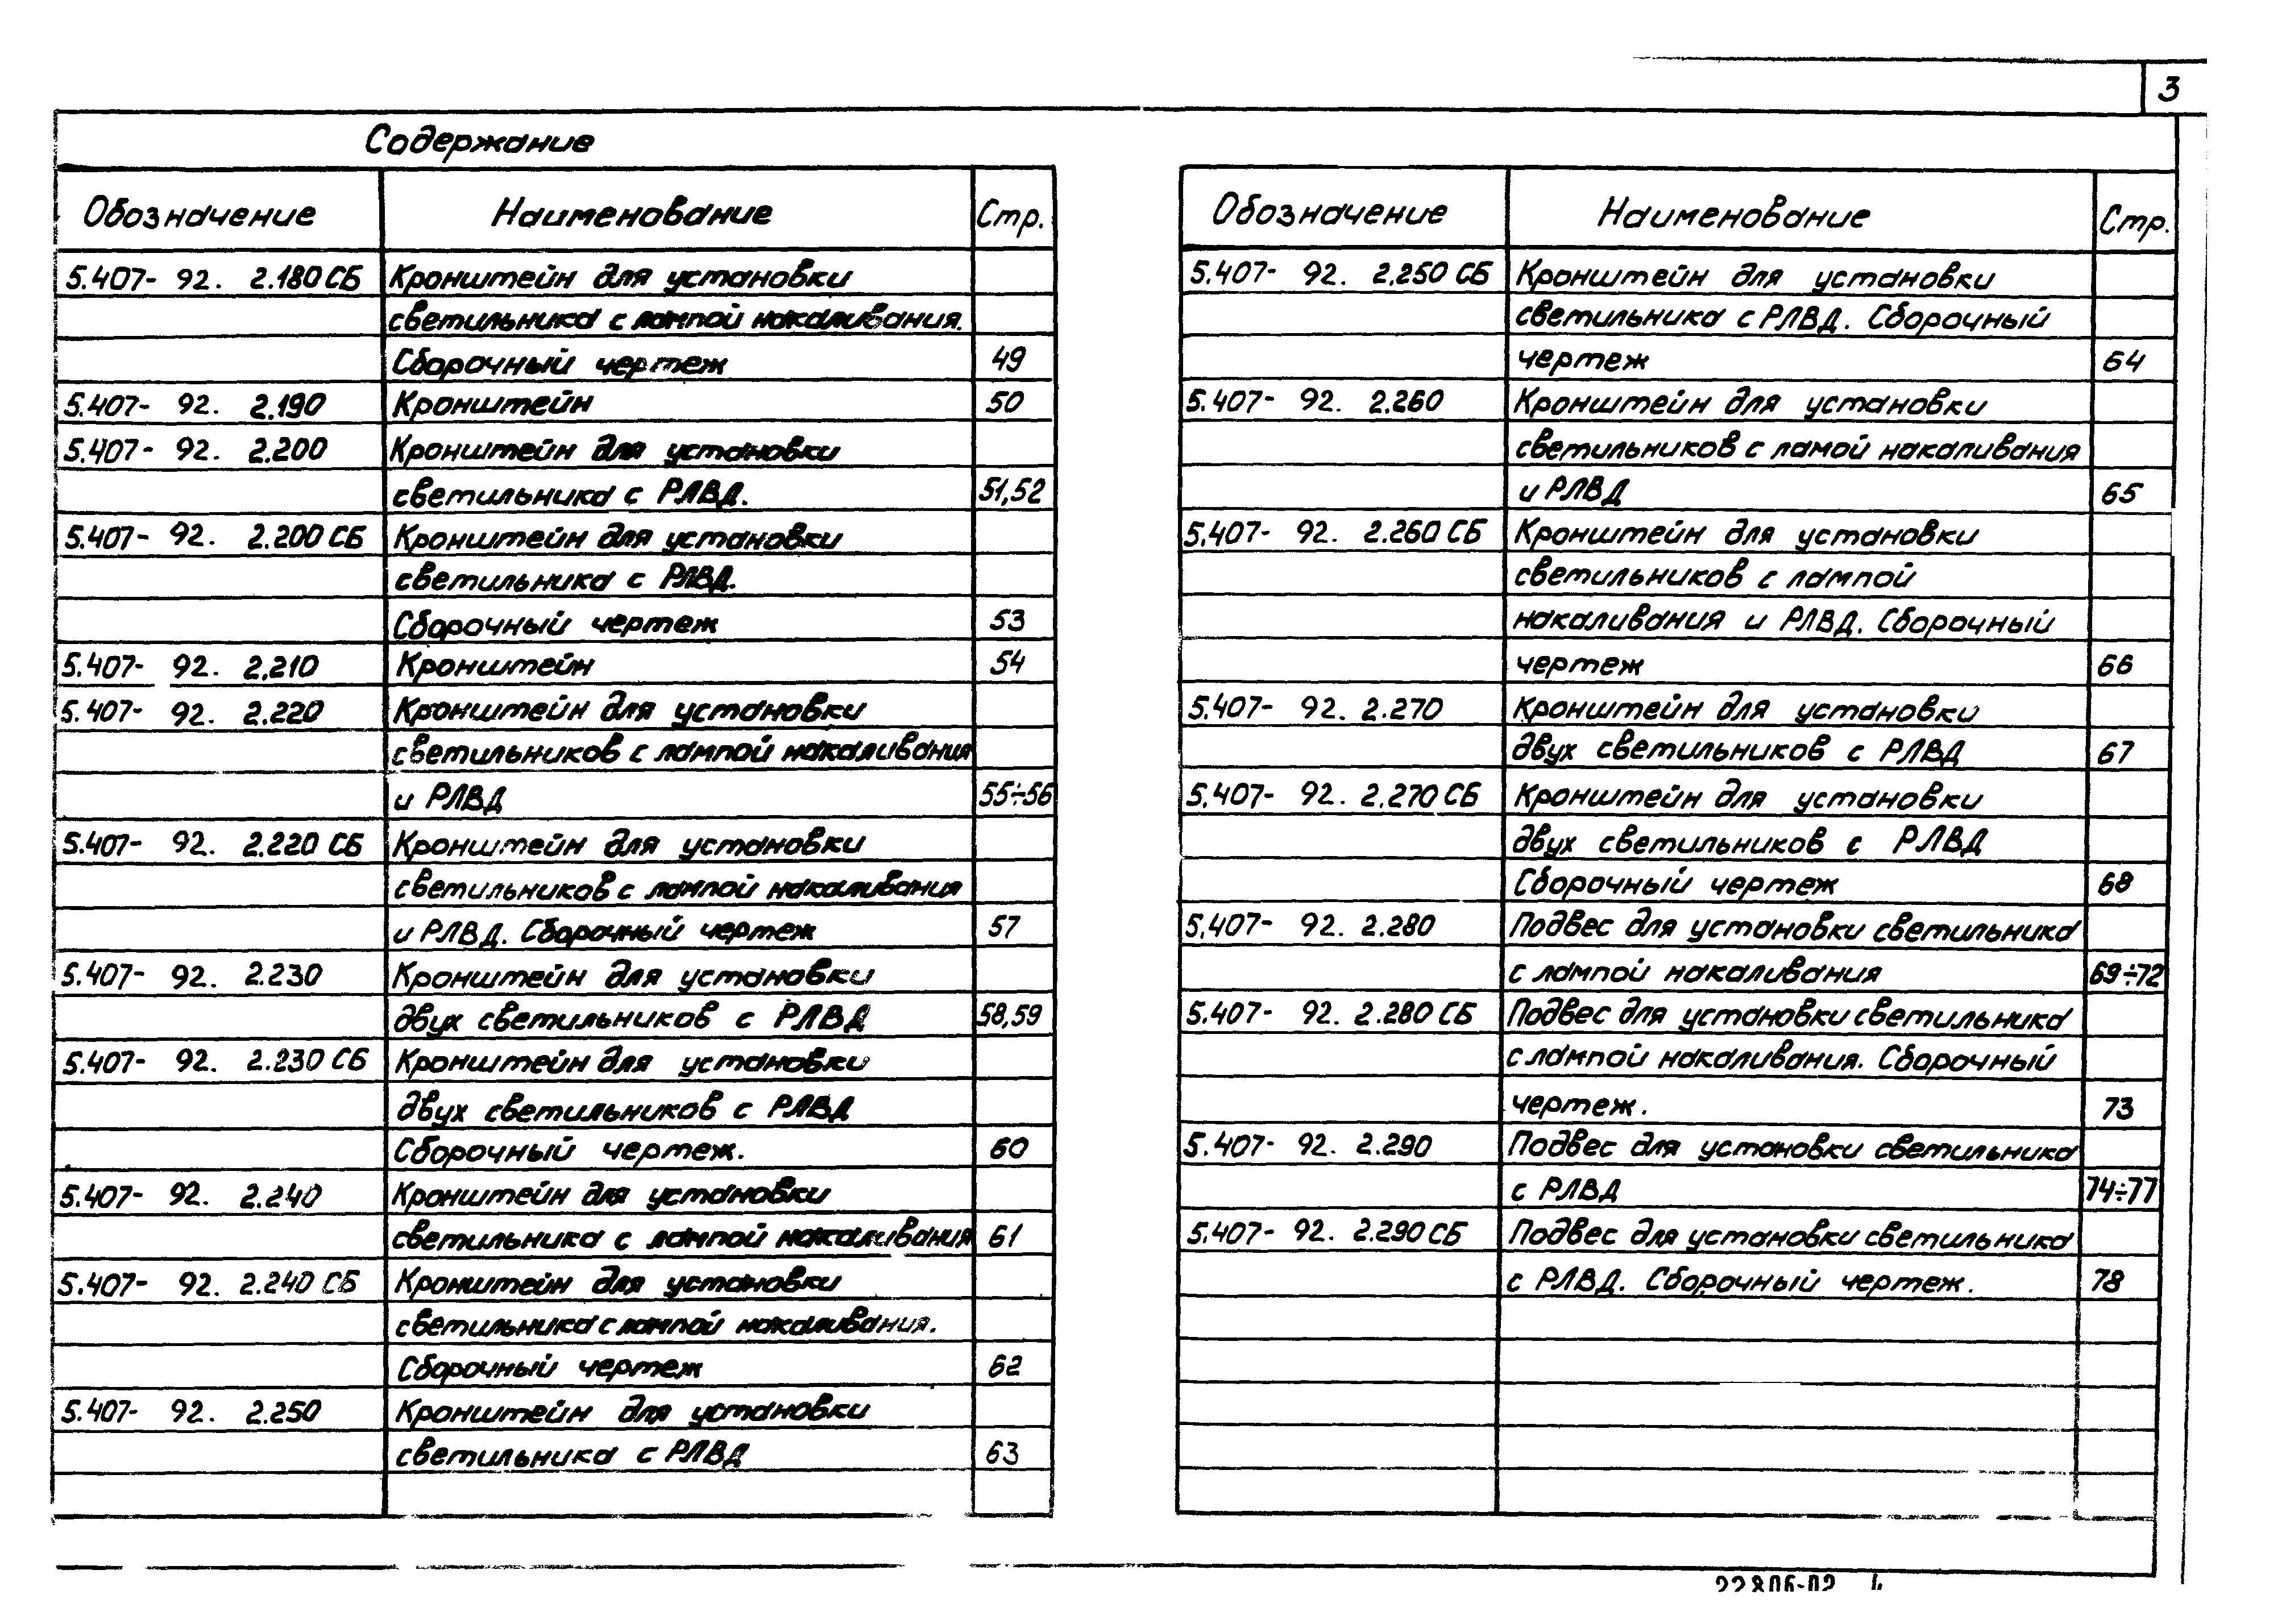 3
Содержание
Обозначение Наименование Стр.
5.407- 92. 2.180 СБ Кронштейн для установки
светильника с лампой накаливания.
Сборочный чертеж 49
5.407- 92. 2.190 Кронштейн 50
5.407- 92. 2.200 Кронштейн для установки
светильника с РЛВД. 51,52
5.407- 92. 2.200 СБ Кронштейн для установки
светильника с РЛВД.
Сборочный чертеж 53
5.407- 92. 2.210 Кронштейн 54
5.407- 92. 2.220 Кронштейн для установки
светильников с лампой накаливания
и РЛВД 55÷56
5.407- 92. 2.220 СБ Кронштейн для установки
светильников с лампой накаливания
и РЛВД. Сборочный чертеж 57
5.407- 92. 2.230 Кронштейн для установки
двух светильников с РЛВД 58,59
5.407- 92. 2.230 СБ Кронштейн для установки
двух светильников с РЛВД
Сборочный чертеж. 60
5.407- 92. 2.240 Кронштейн для установки
светильника с лампой накаливания 61
5.407- 92. 2.240 СБ Кронштейн для установки
светильника с лампой накаливания.
Сборочный чертеж 62
5.407- 92. 2.250 Кронштейн для установки
светильника с РЛВД 63
Обозначение Наименование Стр.
5.407- 92. 2.250 СБ Кронштейн для установки
светильника с РЛВД. Сборочный
чертеж 64
5.407- 92. 2.260 Кронштейн для установки
светильников с ламой накаливания
и РЛВД 65
5.407- 92. 2.260 СБ Кронштейн для установки
светильников с лампой
накаливания и РЛВД. Сборочный
чертеж 66
5.407- 92. 2.270 Кронштейн для установки
двух светильников с РЛВД 67
5.407- 92. 2.270 СБ Кронштейн для установки
двух светильников с РЛВД
Сборочный чертеж 68
5.407- 92. 2.280 Подвес для установки светильника
с лампой накаливания 69÷72
5.407- 92. 2.280 СБ Подвес для установки светильника
с лампой накаливания. Сборочный
чертеж. 73
5.407- 92. 2.290 Подвес для установки светильника
с РЛВД 74÷77
5.407- 92. 2.290 СБ Подвес для установки светильника
с РЛВД. Сборочный чертеж. 78
22806-02